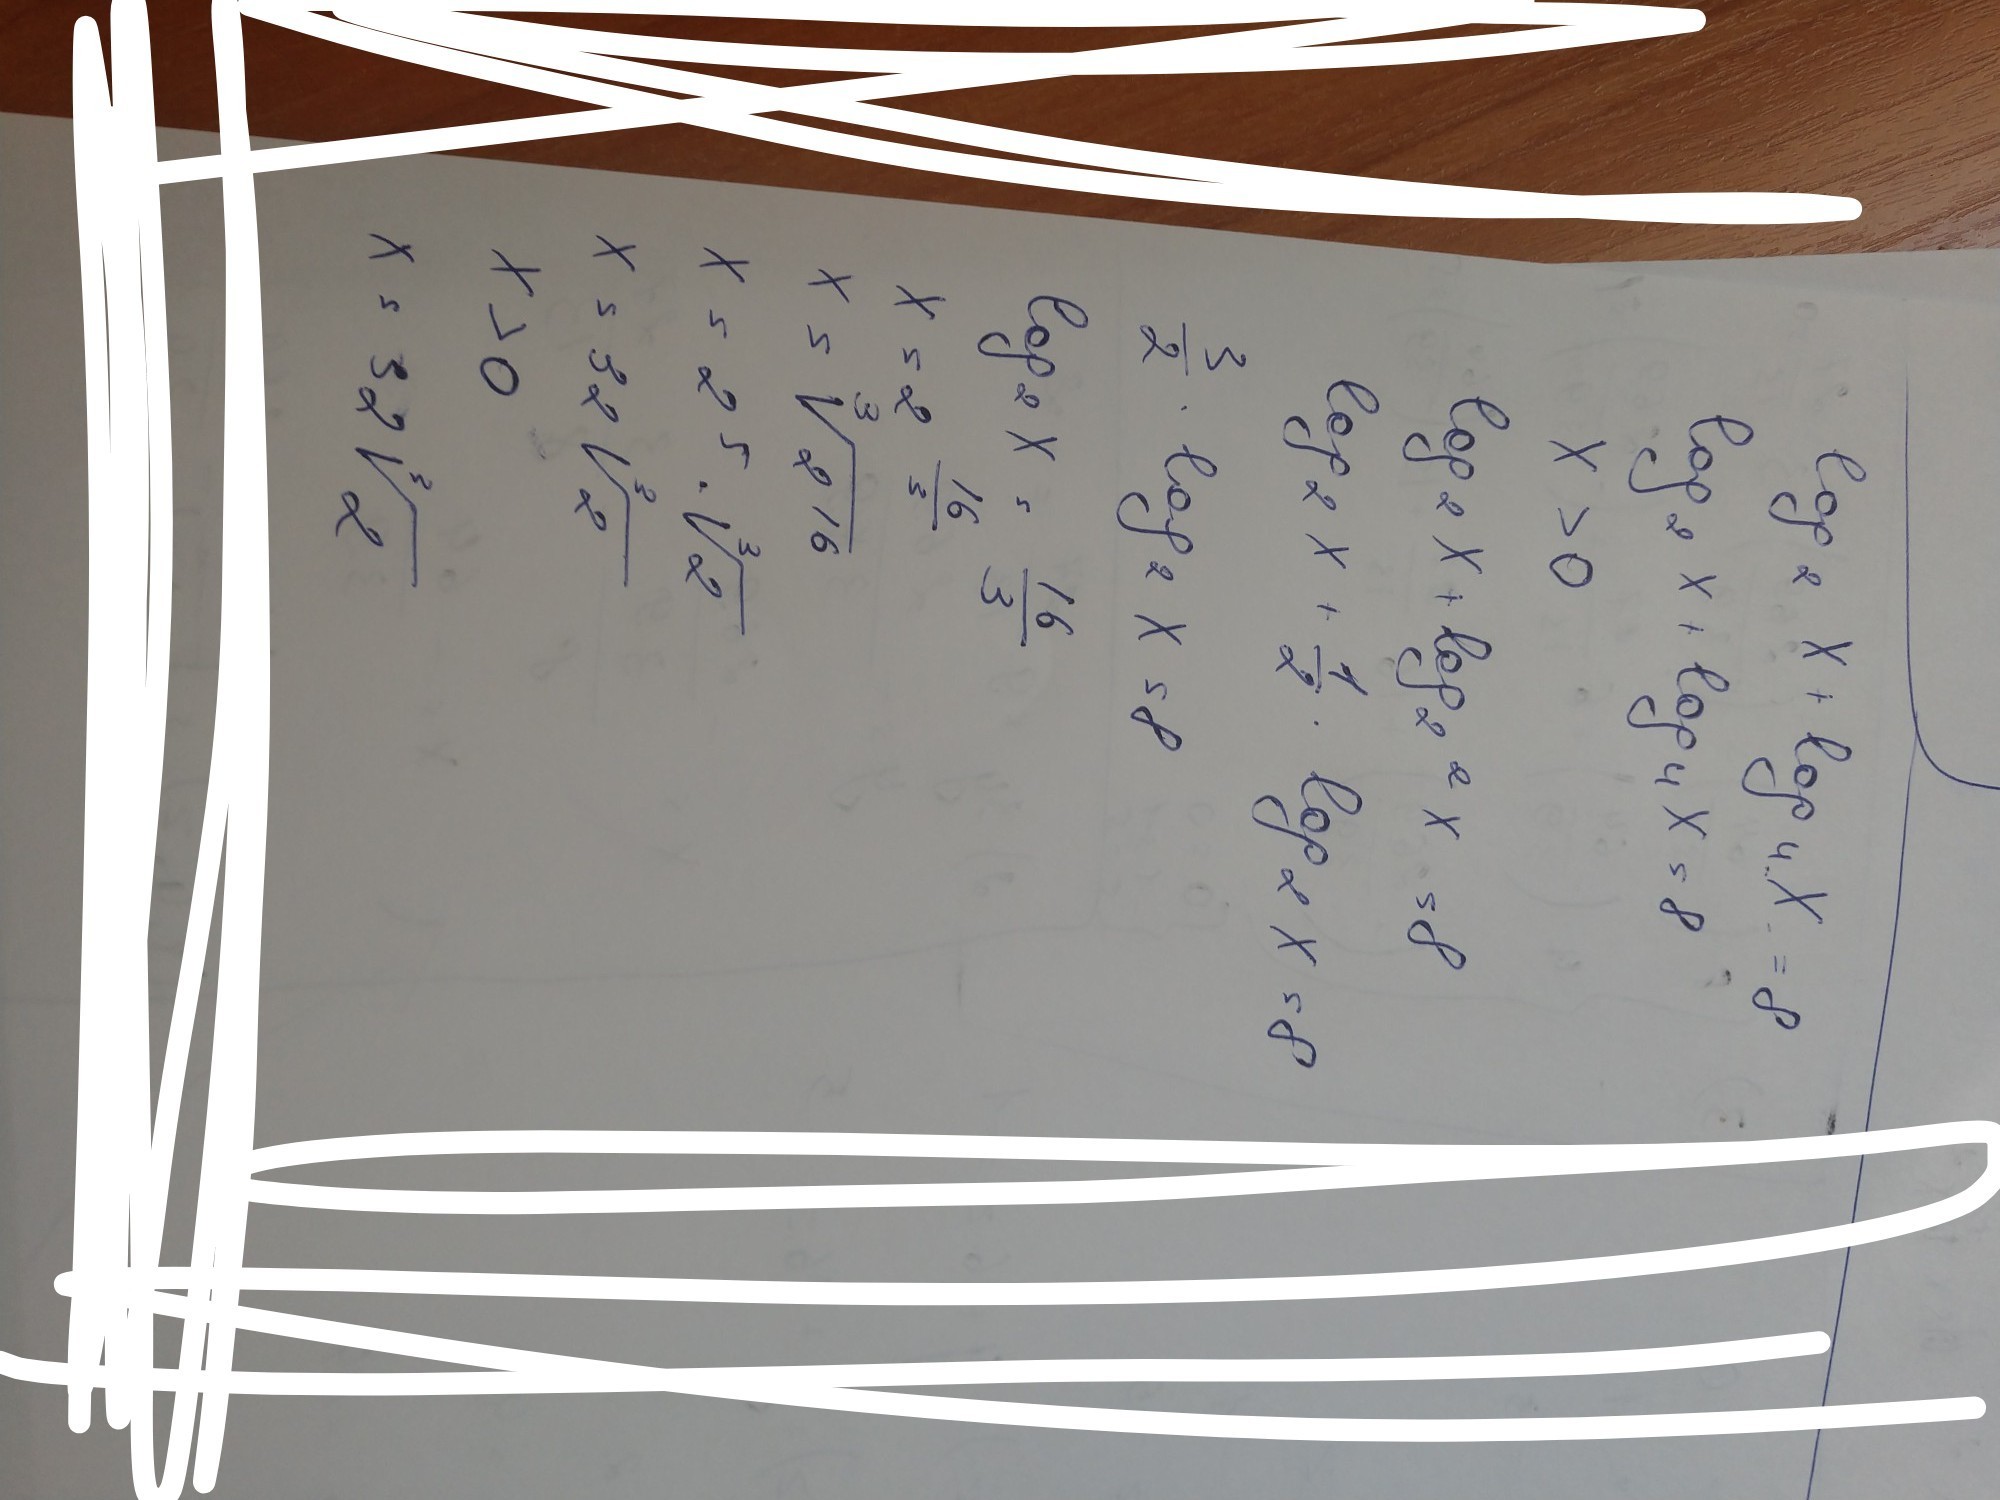 log₂ x + log₄ x = 8
log₂ x + log₄ x = 8
x > 0
log₂ x + log₂² x = 8
log₂ x + 1/2 · log₂ x = 8
3/2 · log₂ x = 8
log₂ x = 16/3
x = 2^(16/3)
x = ∛(2^16)
x = 2^5 · ∛2
x = 32 ∛2
x > 0
x = 32 ∛2